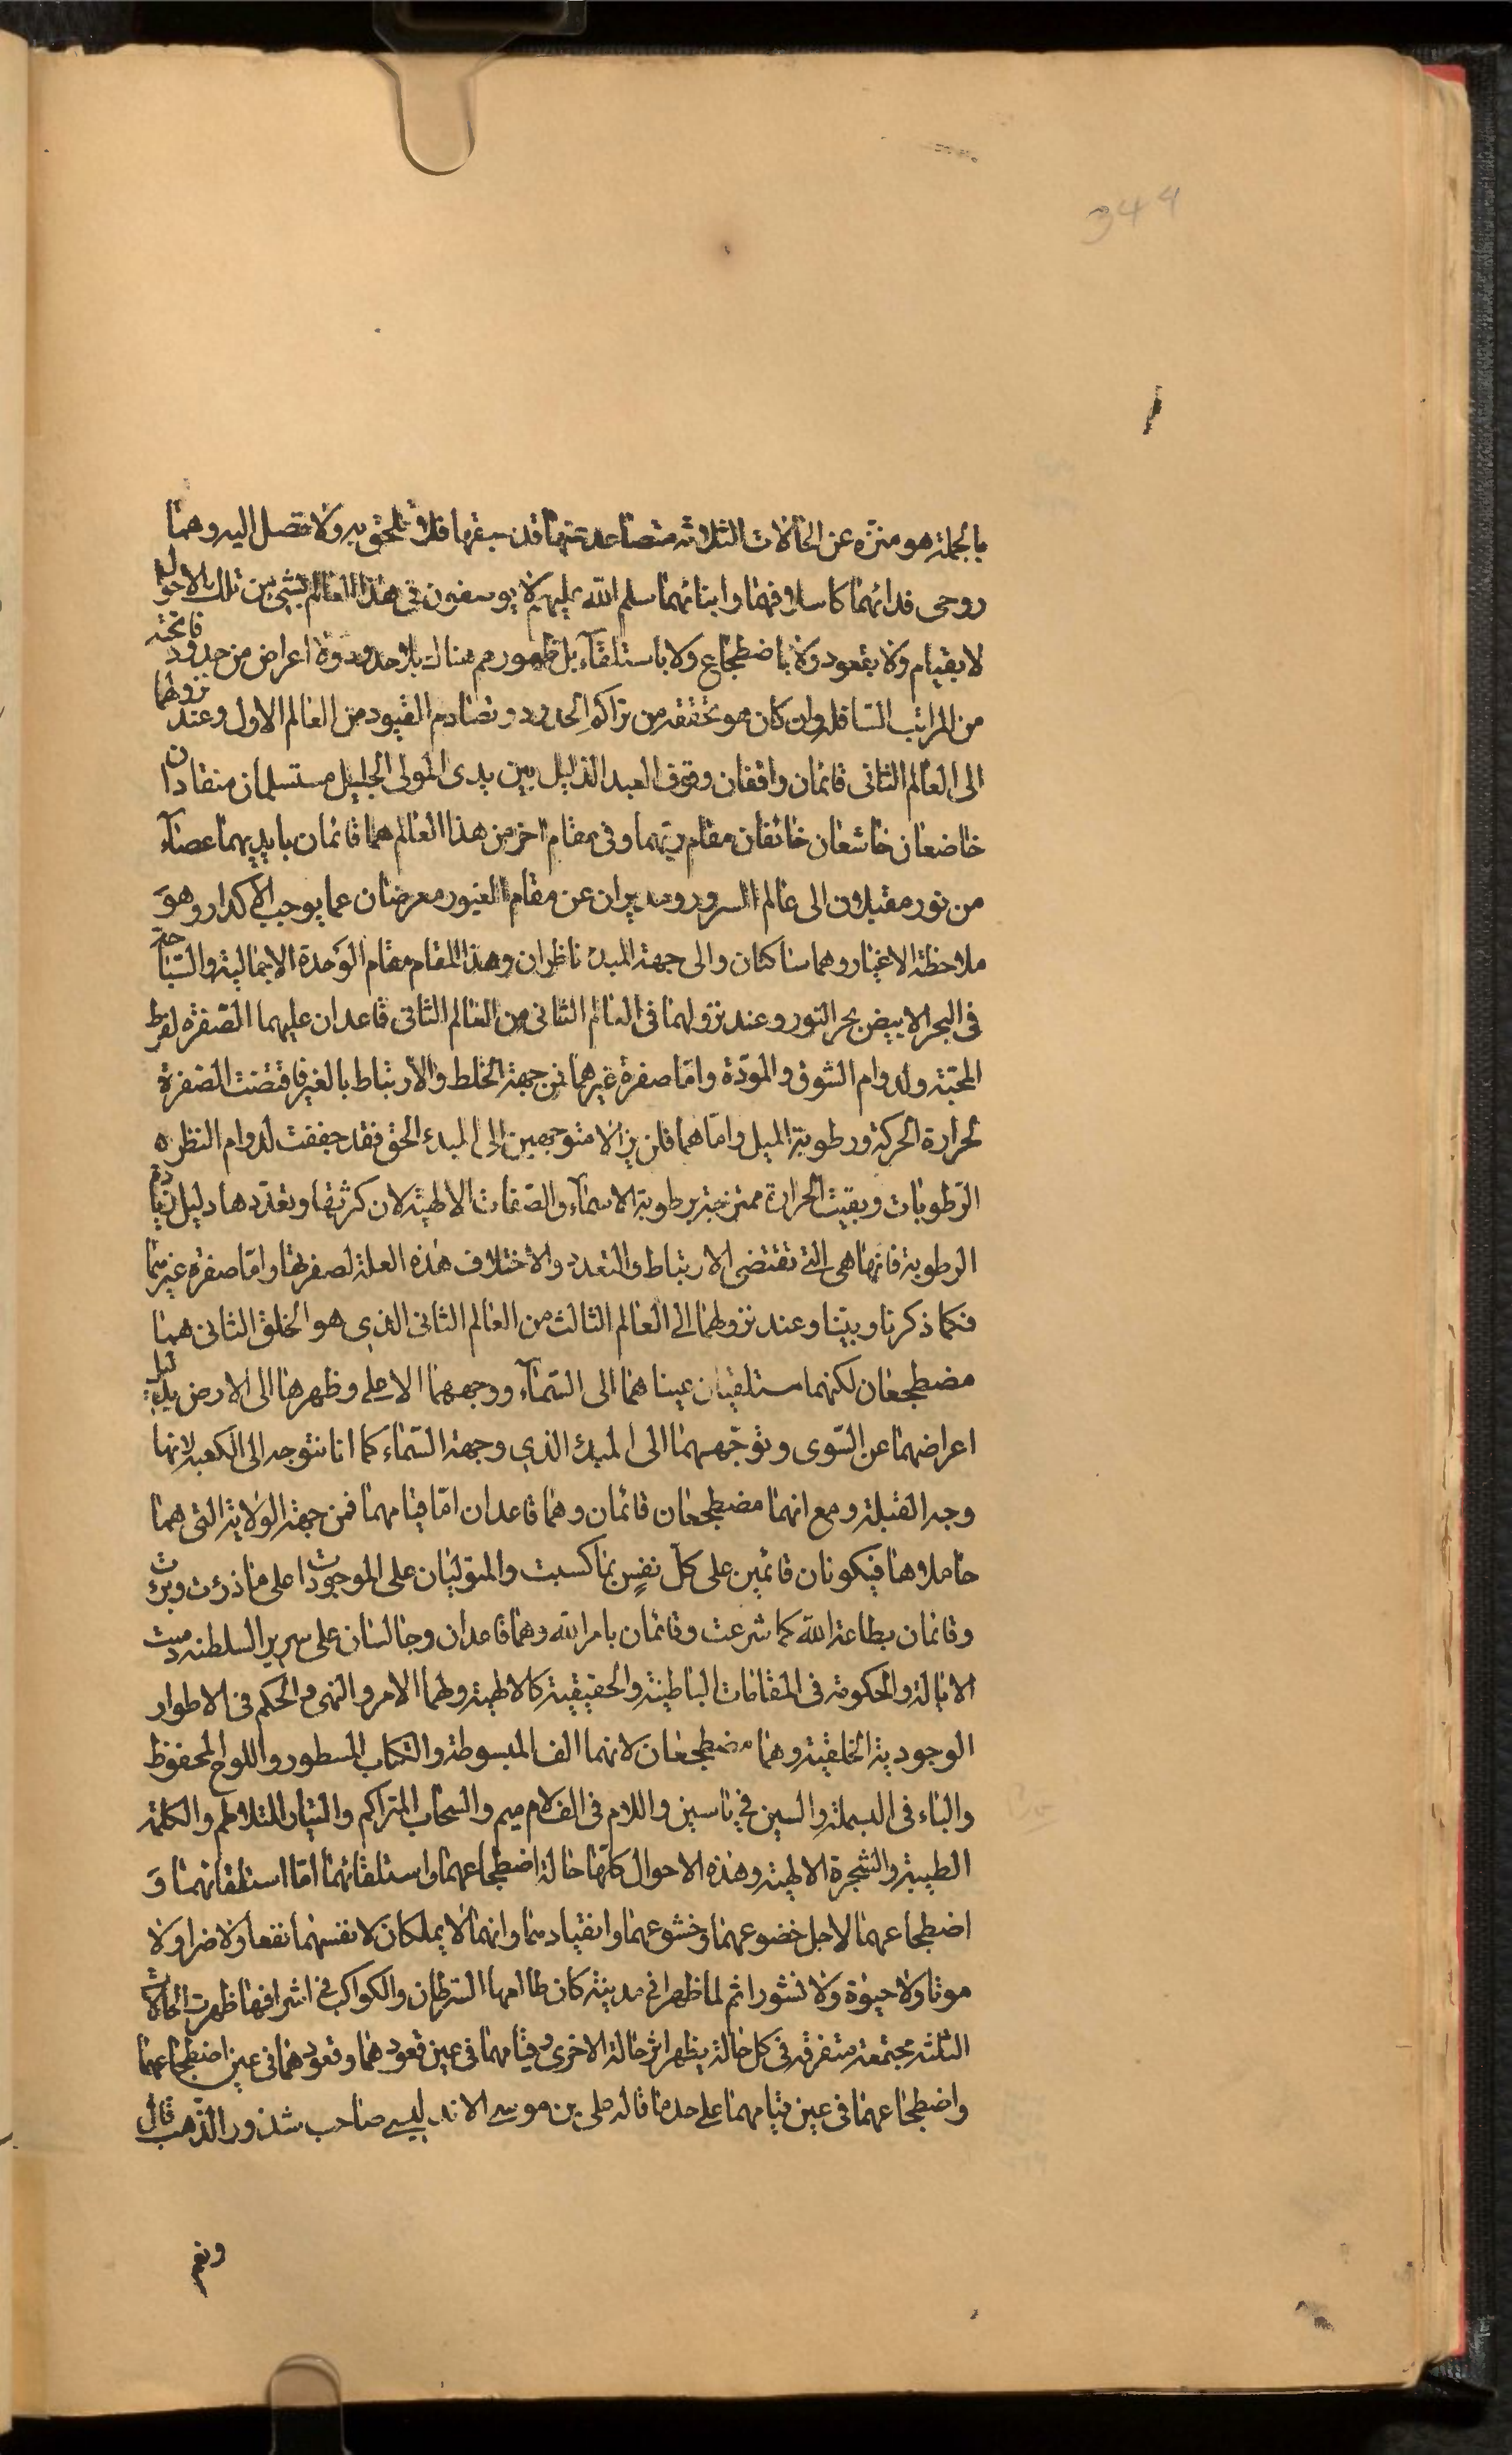 344
بالجملة هو منزه عن الحالات الثلاثة متصاعد عنها قد سبقها فلا تلحق به ولا تصل اليه وهما
روحى فدائهما كاسلافهما وابنائهما سلم الله عليهم لا يوصفون فى هذا العالم بشئ من تلك الاحوال
لا بقيام ولا بقعود ولا باضطجاع ولا باستلقآء بل ظهورهم هناك بلا حدود ولا اعراض من حدود فائحة
من المراتب السافلة وان كان هو تحققه من تراكم الحدود وتصادم القيود من العالم الاول وعند نزولهما
الى العالم الثانى قائمان واقفان وقوف العبد الذليل بين يدى المولى الجليل مستسلمان منقادان
خاضعان خاشعان خائفان مقام ربهما وفى مقام اخر من هذا العالم هما قائمان بايديهما عصآء
من نور مقبلان الى عالم السرور ومدبران عن مقام الغيور معرضان عما يوجب الاكدار وهو
ملاحظة الاغيار وهما ساكتان والى جهة المبدء ناظران وهذا المقام مقام الوحدة الاجمالية والسباحة
فى البحر الابيض بحر النور وعند نزولهما فى العالم الثانى من العالم الثانى قاعدان عليهما الصفرة لفرط
المحبة ولدوام الشوق والمودّة وامّا صفرة غيرهما فمن جهة الخلط والارتباط بالغير فاقتضت الصفرة
لحرارة الحركة ورطوبة الميل وامّا هما فلن يزالا متوجهين الى المبدء الحق فقد جففت لدوام النظره
الرّطوبات وبقيت الحرارة ممتزجة برطوبة الاسمآء والصّفات الالهية لان كثرتها وتعدّدها دليل زيادة
الرطوبة فانها هى التى تقتضى الارتباط والتعدد والاختلاف هذه العلة لصفرتها وامّا صفرة غيرهما
فكما ذكرنا وبيّنا وعند نزولهما الى العالم الثالث من العالم الثانى الذى هو الخلق الثانى هما
مضطجعان لكنهما مستلقيان عيناهما الى السّمآء ووجههما الاعلى وظهرهما الى الارض بدليل
اعراضهما عن السّوى وتوجّههما الى المبدء الذى وجهة السّماء كما انا نتوجه الى الكعبة لانها
وجه القبلة ومع انهما مضطجعان قائمان وهما قاعدان امّا قيامهما فمن جهة الولاية التى هما
حاملاها فيكونان قائمين على كلّ نفسٍ بما كسبت والمتوليان على الموجودات على ما ذرئت وبرئت
وقائمان بطاعة الله كما شرعت وقائمان بامر الله وهما قاعدان وجالسان على سرير السلطنة ودست
الايالة والحكومة فى المقامات الباطنية والحقيقية كالالهية ولهما الامر والنهى والحكم فى الاطوار
الوجودية الخلقية وهما مضطجعان لانهما الف المبسوطة والكتاب المسطور واللوح المحفوظ
والباء فى البسملة والسين فى ياسين واللام فى الف لام ميم والسّحاب المتراكم والتيار المتلاطم والكلمة
الطيبة والشجرة الالهية وهذه الاحوال كلها حالة اضطجاعهما واستلقائهما امّا استلقائهما و
اضطجاعهما لاجل خضوعهما وخشوعهما وانقيادهما وانهما لا يملكان لانفسهما نفعا ولا ضرا ولا
موتا ولا حيوة ولا نشورا ثم لما ظهرا فى مدينة كان طالعها السرطان والكواكب فى اشرافها ظهرت الحالات
الثلثة مجتمعة متفرقة فى كل حالة يظهر اثر حالة الاخرى وقيامهما فى عين قعودهما وقعودهما فى عين اضطجاعهما
واضطجاعهما فى عين قيامهما على حد ما قاله على بن موسى الاندلسى صاحب شذور الذّهب قال